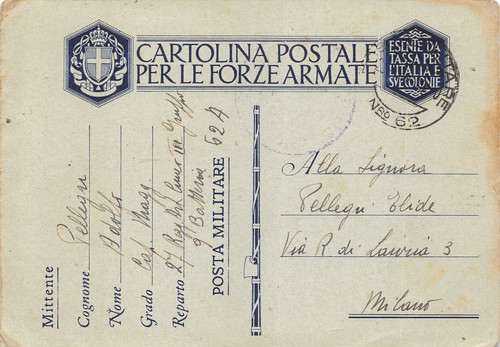 CARTOLINA POSTALE
PER LE FORZE ARMATE
ESENTE DA
TASSA PER
L'ITALIA E
SVE COLONIE
NRO 62
Mittente
Cognome Pellegri
Nome Adolfo
Grado Cap. Magg.
Reparto 27 III Gruppo
9ª Batteria
POSTA MILITARE 624
Alla Signora
Pellegri Elide
Via R. di Lauria 3
Milano